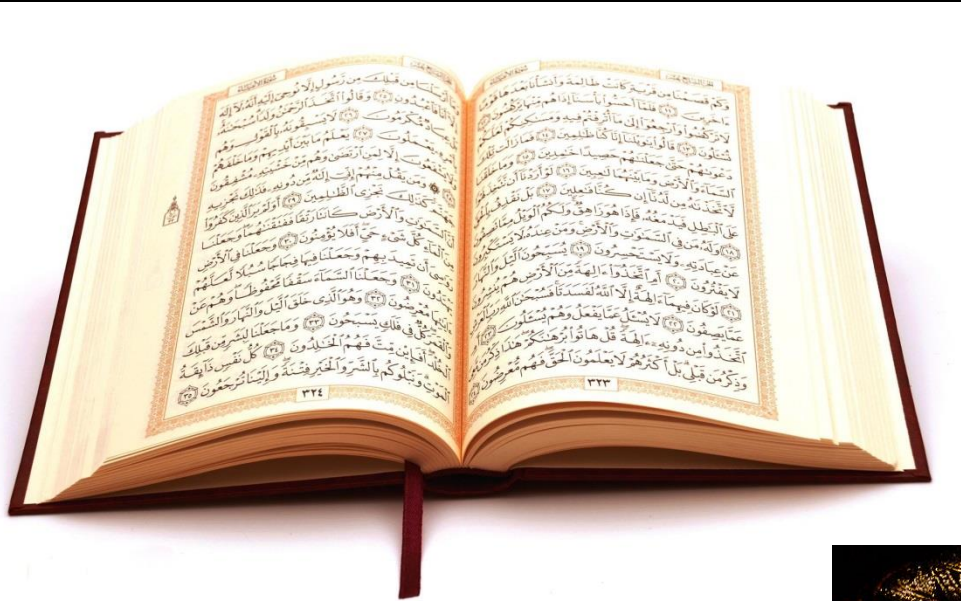 وَكَمْ قَصَمْنَا مِن قَرْيَةٍ كَانَتْ ظَالِمَةً وَأَنشَأْنَا بَعْدَهَا قَوْمًا
ءَاخَرِينَ ١١ فَلَمَّآ أَحَسُّوا۟ بَأْسَنَآ إِذَا هُم مِّنْهَا يَرْكُضُونَ ١٢
لَا تَرْكُضُوا۟ وَٱرْجِعُوٓا۟ إِلَىٰ مَآ أُتْرِفْتُمْ فِيهِ وَمَسَٰكِنِكُمْ لَعَلَّكُمْ
تُسْـَٔلُونَ ١٣ قَالُوا۟ يَٰوَيْلَنَآ إِنَّا كُنَّا ظَٰلِمِينَ ١٤ فَمَا زَالَت تِّلْكَ
دَعْوَىٰهُمْ حَتَّىٰ جَعَلْنَٰهُمْ حَصِيدًا خَٰمِدِينَ ١٥ وَمَا خَلَقْنَا
ٱلسَّمَآءَ وَٱلْأَرْضَ وَمَا بَيْنَهُمَا لَٰعِبِينَ ١٦ لَوْ أَرَدْنَآ أَن نَّتَّخِذَ لَهْوًا
لَّٱتَّخَذْنَٰهُ مِن لَّدُنَّآ إِن كُنَّا فَٰعِلِينَ ١٧ بَلْ نَقْذِفُ بِٱلْحَقِّ
عَلَى ٱلْبَٰطِلِ فَيَدْمَغُهُۥ فَإِذَا هُوَ زَاهِقٌ وَلَكُمُ ٱلْوَيْلُ مِمَّا تَصِفُونَ
١٨ وَلَهُۥ مَن فِى ٱلسَّمَٰوَٰتِ وَٱلْأَرْضِ وَمَنْ عِندَهُۥ لَا يَسْتَكْبِرُونَ
عَنْ عِبَادَتِهِۦ وَلَا يَسْتَحْسِرُونَ ١٩ يُسَبِّحُونَ ٱلَّيْلَ وَٱلنَّهَارَ
لَا يَفْتُرُونَ ٢٠ أَمِ ٱتَّخَذُوٓا۟ ءَالِهَةً مِّنَ ٱلْأَرْضِ هُمْ يُنشِرُونَ
٢١ لَوْ كَانَ فِيهِمَآ ءَالِهَةٌ إِلَّا ٱللَّهُ لَفَسَدَتَا فَسُبْحَٰنَ ٱللَّهِ رَبِّ ٱلْعَرْشِ
عَمَّا يَصِفُونَ ٢٢ لَا يُسْـَٔلُ عَمَّا يَفْعَلُ وَهُمْ يُسْـَٔلُونَ ٢٣ أَمِ
ٱتَّخَذُوا۟ مِن دُونِهِۦٓ ءَالِهَةً قُلْ هَاتُوا۟ بُرْهَٰنَكُمْ هَٰذَا ذِكْرُ مَن مَّعِىَ
وَذِكْرُ مَن قَبْلِى بَلْ أَكْثَرُهُمْ لَا يَعْلَمُونَ ٱلْحَقَّ فَهُم مُّعْرِضُونَ ٢٤
٣٢٣
وَمَآ أَرْسَلْنَا مِن قَبْلِكَ مِن رَّسُولٍ إِلَّا نُوحِىٓ إِلَيْهِ أَنَّهُۥ لَآ إِلَٰهَ إِلَّآ
أَنَا۠ فَٱعْبُدُونِ ٢٥ وَقَالُوا۟ ٱتَّخَذَ ٱلرَّحْمَٰنُ وَلَدًا سُبْحَٰنَهُۥ
بَلْ عِبَادٌ مُّكْرَمُونَ ٢٦ لَا يَسْبِقُونَهُۥ بِٱلْقَوْلِ وَهُم
بِأَمْرِهِۦ يَعْمَلُونَ ٢٧ يَعْلَمُ مَا بَيْنَ أَيْدِيهِمْ وَمَا خَلْفَهُمْ
وَلَا يَشْفَعُونَ إِلَّا لِمَنِ ٱرْتَضَىٰ وَهُم مِّنْ خَشْيَتِهِۦ مُشْفِقُونَ
٢٨ وَمَن يَقُلْ مِنْهُمْ إِنِّىٓ إِلَٰهٌ مِّن دُونِهِۦ فَذَٰلِكَ نَجْزِيهِ
جَهَنَّمَ كَذَٰلِكَ نَجْزِى ٱلظَّٰلِمِينَ ٢٩ أَوَلَمْ يَرَ ٱلَّذِينَ كَفَرُوٓا۟
أَنَّ ٱلسَّمَٰوَٰتِ وَٱلْأَرْضَ كَانَتَا رَتْقًا فَفَتَقْنَٰهُمَا وَجَعَلْنَا
مِنَ ٱلْمَآءِ كُلَّ شَىْءٍ حَىٍّ أَفَلَا يُؤْمِنُونَ ٣٠ وَجَعَلْنَا فِى ٱلْأَرْضِ
رَوَٰسِىَ أَن تَمِيدَ بِهِمْ وَجَعَلْنَا فِيهَا فِجَاجًا سُبُلًا لَّعَلَّهُمْ
يَهْتَدُونَ ٣١ وَجَعَلْنَا ٱلسَّمَآءَ سَقْفًا مَّحْفُوظًا وَهُمْ عَنْ
ءَايَٰتِهَا مُعْرِضُونَ ٣٢ وَهُوَ ٱلَّذِى خَلَقَ ٱلَّيْلَ وَٱلنَّهَارَ وَٱلشَّمْسَ
وَٱلْقَمَرَ كُلٌّ فِى فَلَكٍ يَسْبَحُونَ ٣٣ وَمَا جَعَلْنَا لِبَشَرٍ مِّن قَبْلِكَ
ٱلْخُلْدَ أَفَإِي۟ن مِّتَّ فَهُمُ ٱلْخَٰلِدُونَ ٣٤ كُلُّ نَفْسٍ ذَآئِقَةُ
ٱلْمَوْتِ وَنَبْلُوكُم بِٱلشَّرِّ وَٱلْخَيْرِ فِتْنَةً وَإِلَيْنَا تُرْجَعُونَ ٣٥
٣٢٤